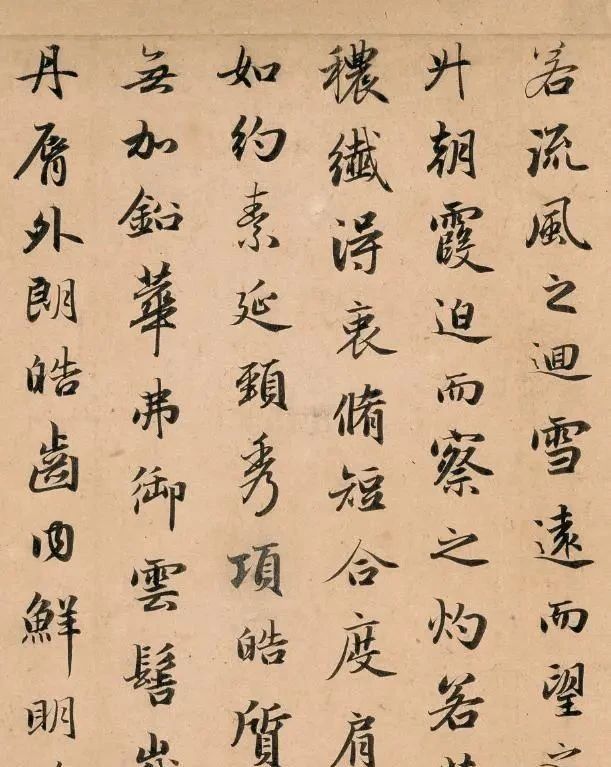 若流風之迴雪遠而望
升朝霞迫而察之灼若
穠纖得衷脩短合度肩
如約素延頸秀項皓質
無加鉛華弗御雲髻
丹脣外朗皓齒內鮮明